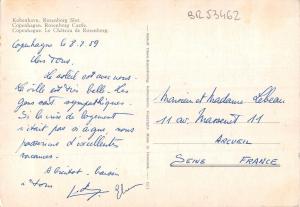 København. Rosenborg Slot.
Copenhagen. Rosenborg Castle.
Copenhague. Le Château de Rosenborg.
BR53462
Copenhague le 8.7.59
Chers Tous.
Le soleil est avec nous.
La ville est très belle. les
gens sont sympathiques.
Si la crise de logement
n'était pas si aigue, nous
passerions d'excellentes
vacances.
A bientot. baisers
à tous
Monsieur et Madame Lebeau
11 av. Massenet 11
ARCUEIL
SEINE FRANCE